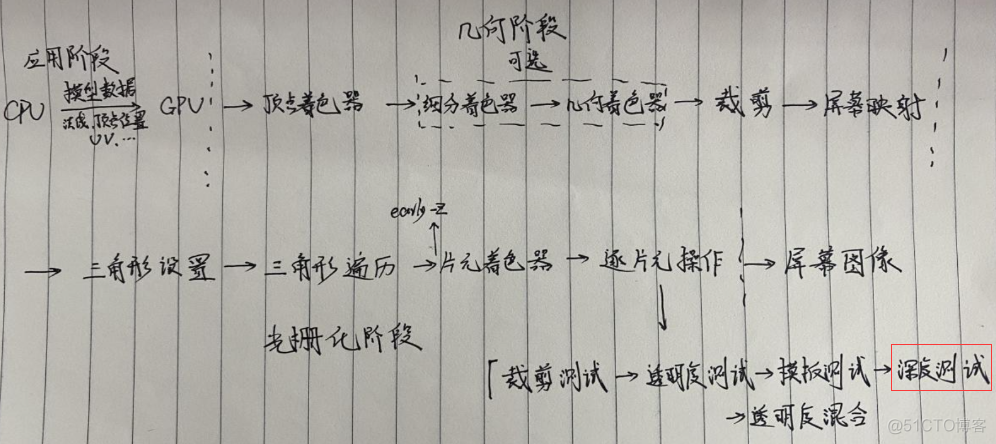 几何阶段
应用阶段
可选
CPU 模型数据 → GPU → 顶点着色器 → 细分着色器 → 几何着色器 → 裁剪 → 屏幕映射
法线、顶点位置
UV、...
early-z
→ 三角形设置 → 三角形遍历 → 片元着色器 → 逐片元操作 → 屏幕图像
光栅化阶段
「裁剪测试 → 透明度测试 → 模板测试 → 深度测试
→ 透明度混合
@51CTO博客